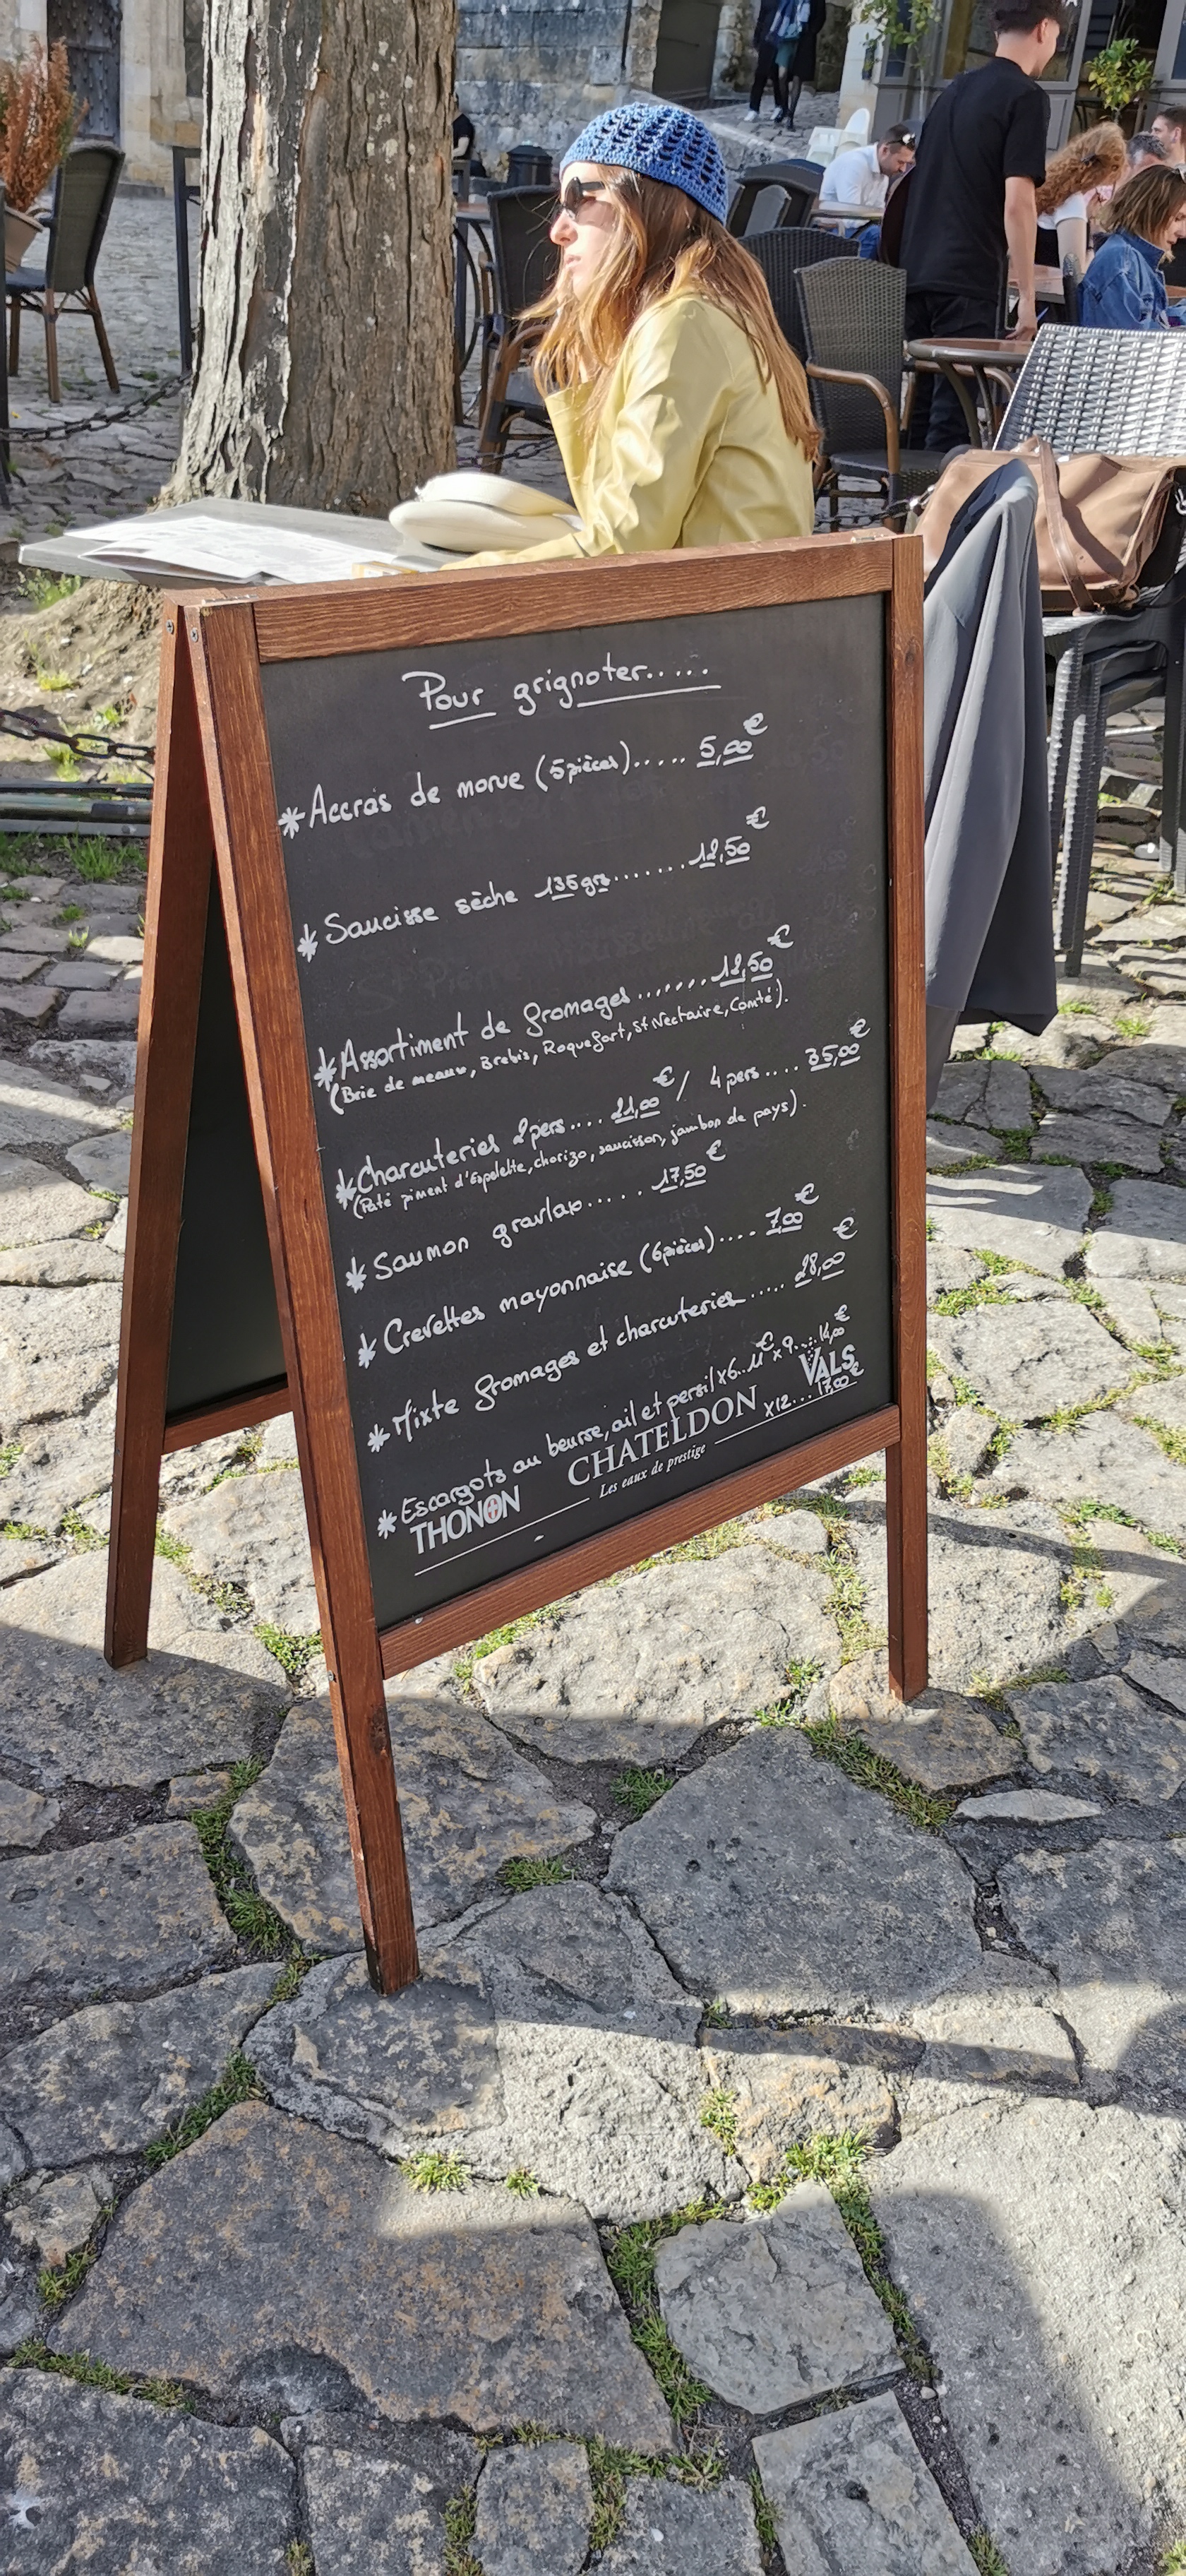 Pour grignoter.....
* Accras de morue (5 pièces)..... 5,00€
* Saucisse sèche 135grs....... 12,50€
* Assortiment de fromages....... 12,50€
(Brie de meaux, Brebis, Roquefort, St Nectaire, Comté).
* Charcuteries 2 pers.... 21,00€ / 4 pers.... 35,00€
(Paté piment d'Espelette, chorizo, saucisson, jambon de pays).
* Saumon gravlax..... 17,50€
* Crevettes mayonnaise (6 pièces).... 7,00€
* Mixte fromages et charcuteries..... 28,00€
* Escargots au beurre, ail et persil x6...11€ x9....14,00€
x12... 17,00€
THONON
CHATELDON
Les eaux de prestige
VALS